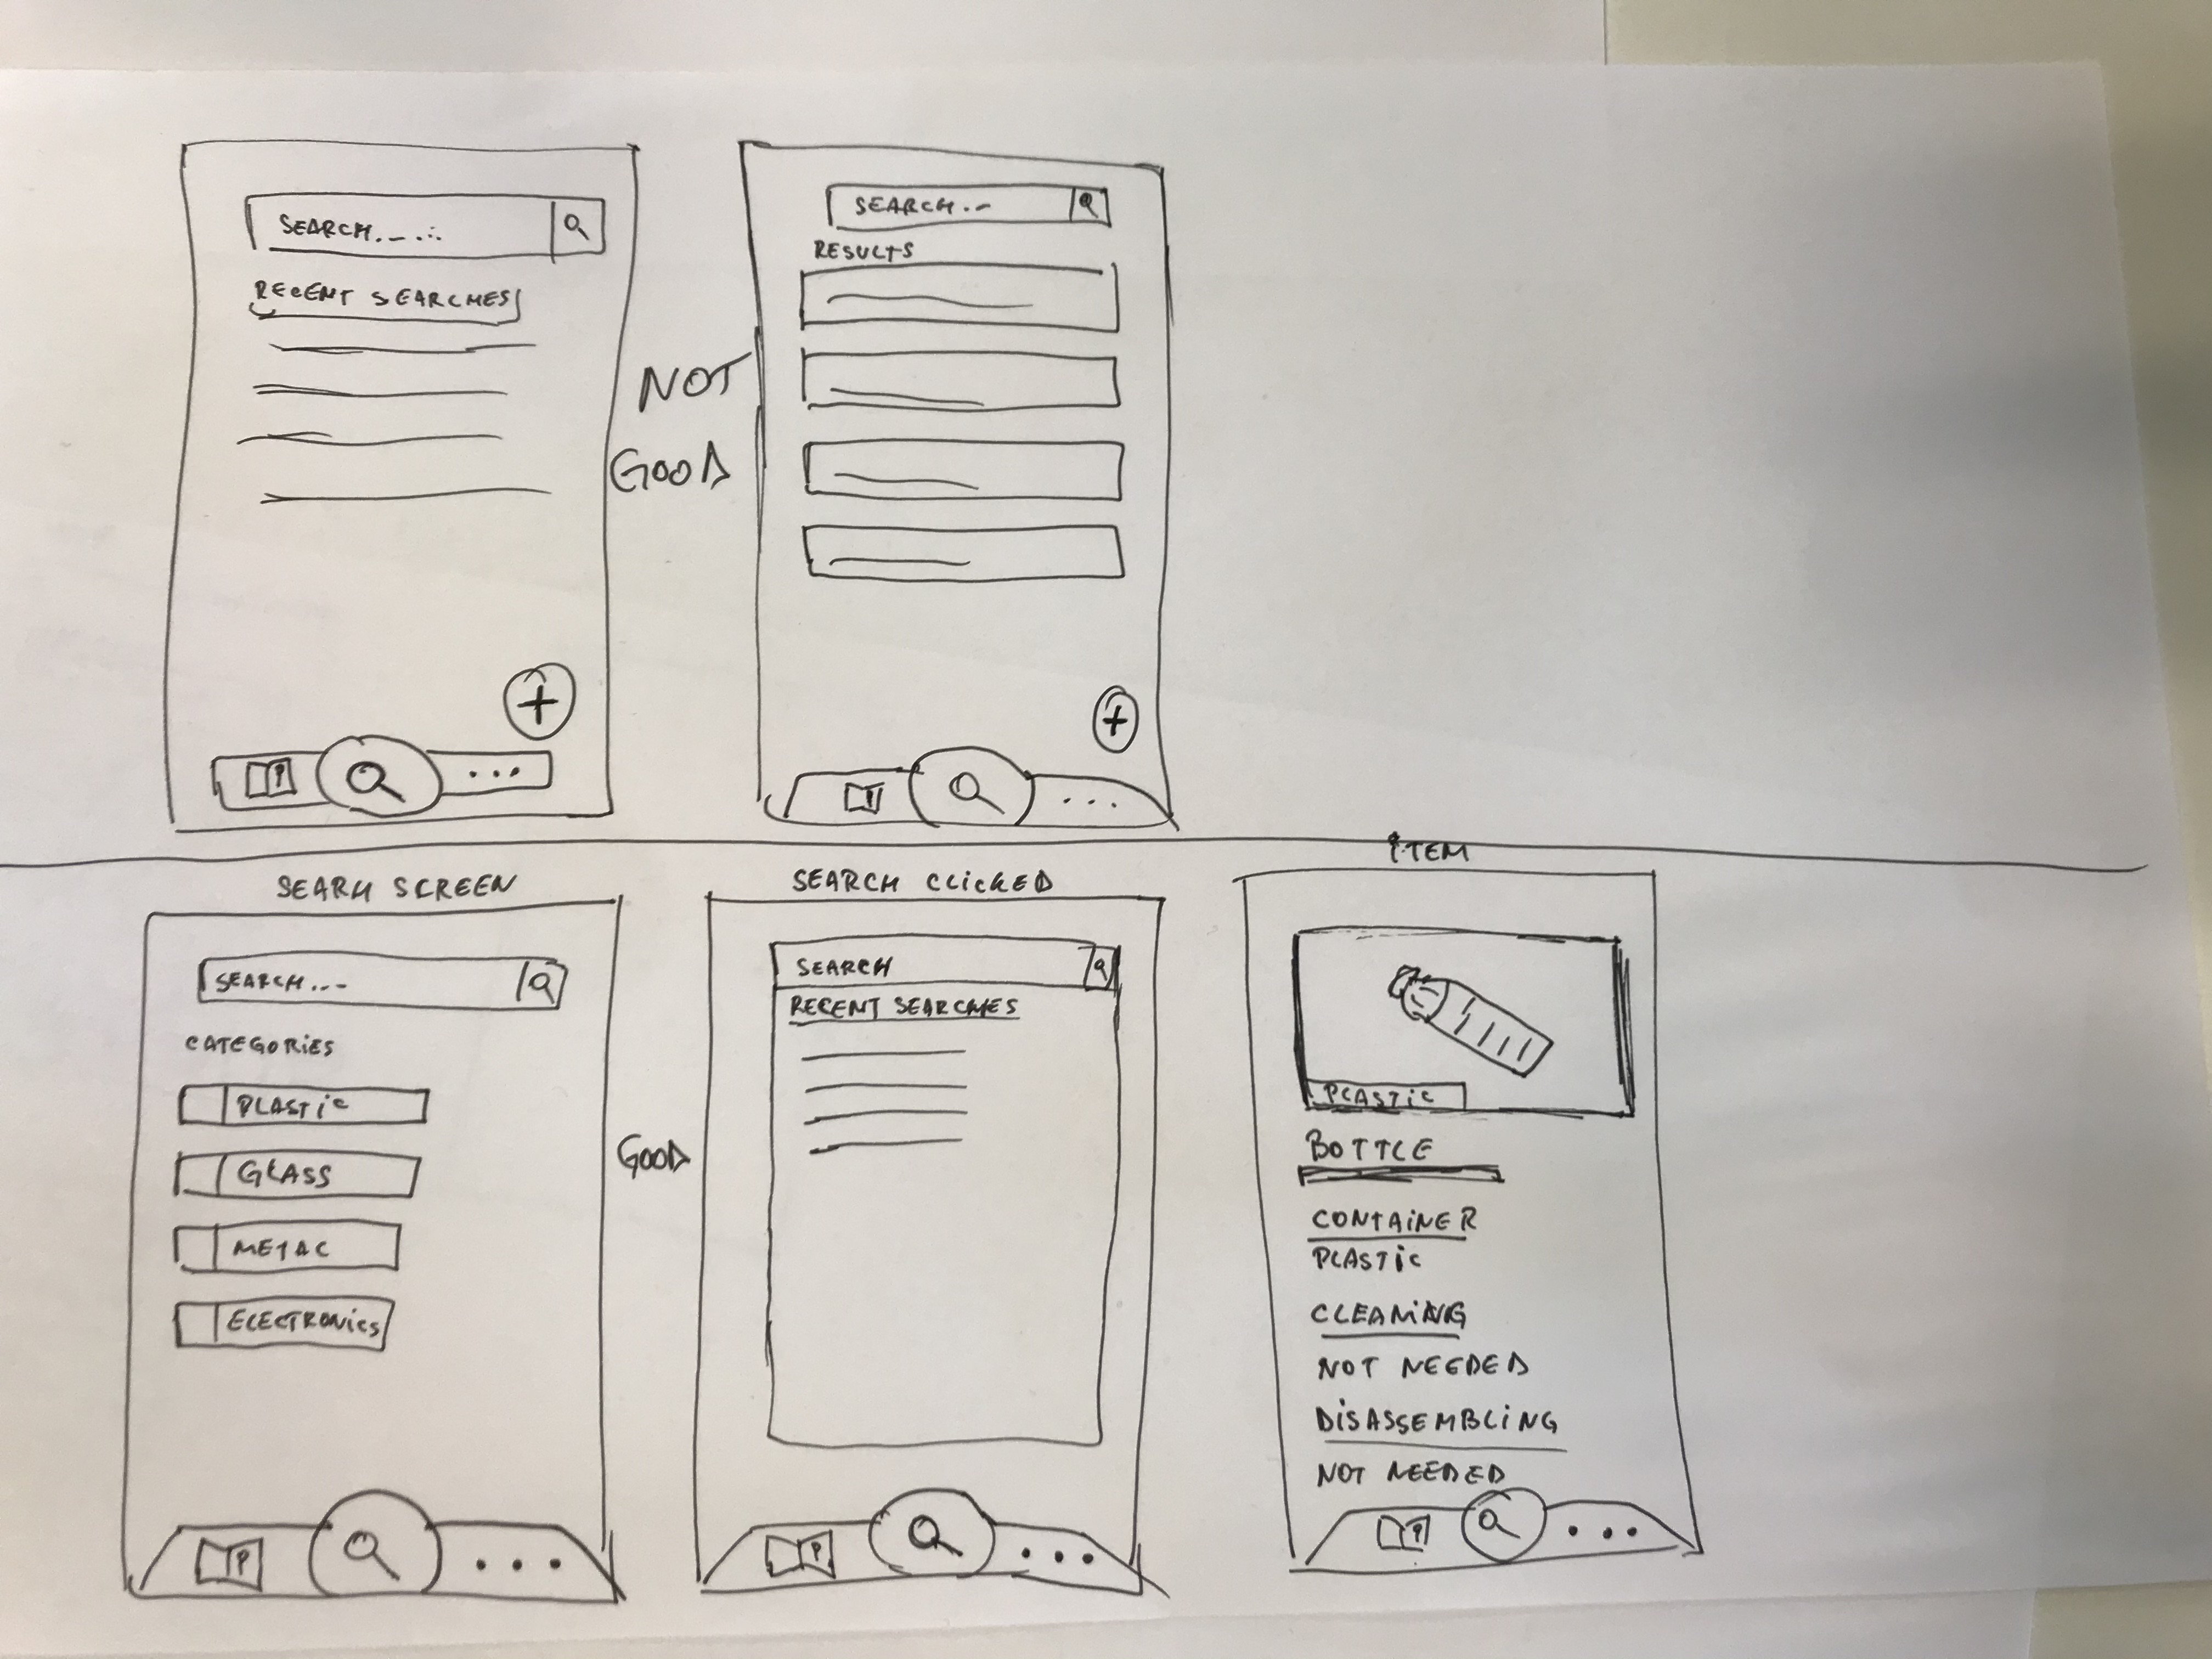 SEARCH.....
RECENT SEARCHES
NOT
GOOD
SEARCH...
RESULTS
SEARH SCREEN
SEARCH...
CATEGORIES
PLASTIC
GLASS
METAL
ELECTRONICS
GOOD
SEARCH CLICKED
SEARCH
RECENT SEARCHES
ITEM
PLASTIC
BOTTLE
CONTAINER
PLASTIC
CLEANING
NOT NEEDED
DISASSEMBLING
NOT NEEDED